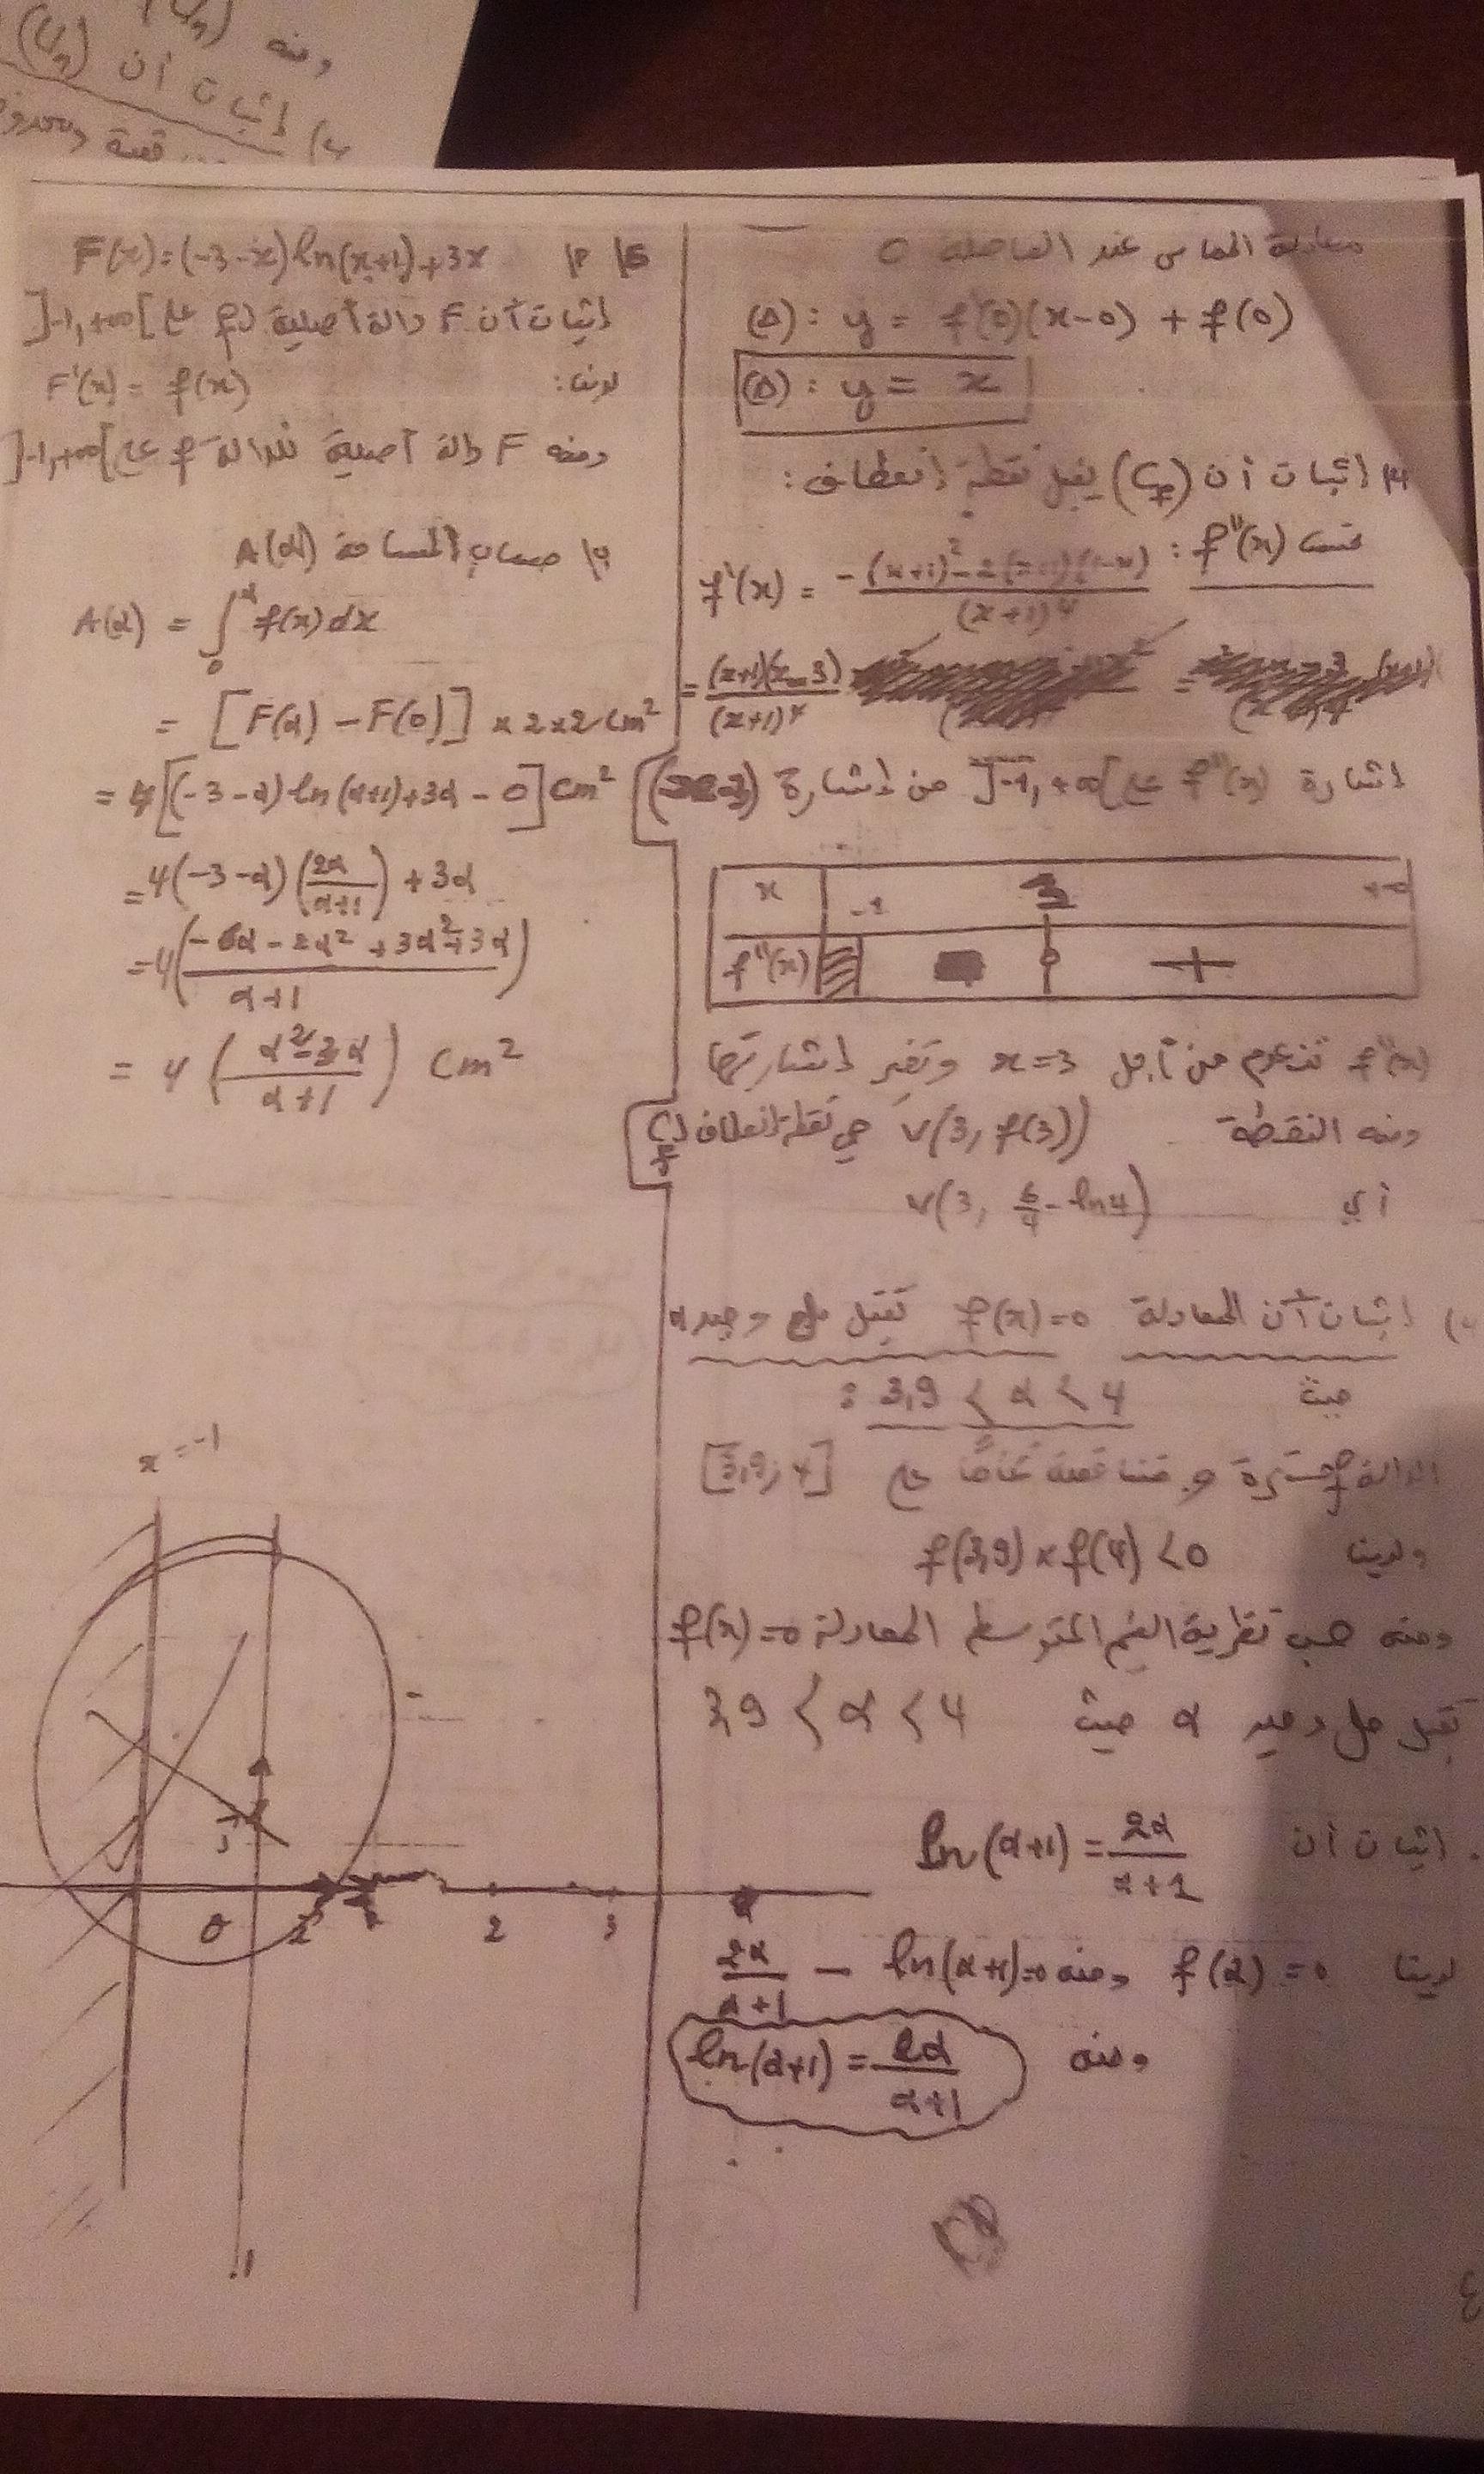 ومنه (Un)
إثبات أن (Un)
معادلة المماس عند الفاصلة 0
(Δ): y = f'(0)(x-0) + f(0)
(Δ): y = x
إثبات أن (Cf) يقبل نقطة انعطاف:
f''(x):
f''(x) = -(x+1)²-2(x+1)(1-x) / (x+1)⁴
= (x+1)(x-3) / (x+1)⁴
إشارة f''(x) على ]-1,+∞[ من إشارة (x-3)
x -1 3 +∞
f''(x) - 0 +
f''(x) تنعدم من أجل x=3 وتغير إشارتها
ومنه النقطة V(3, f(3)) هي نقطة انعطاف لـ (Cf)
أي V(3, 6/4 - ln4)
إثبات أن المعادلة f(x)=0 تقبل حل وحيد α
حيث 3,9 < α < 4 :
الدالة f مستمرة و متناقصة تماما على [3,9; 4]
ولدينا f(3,9) × f(4) < 0
ومنه حسب نظرية القيم المتوسطة المعادلة f(x)=0
تقبل حل وحيد α حيث 3,9 < α < 4
إثبات أن ln(α+1) = 2α/α+1
لدينا f(α)=0 ومنه 2α/α+1 - ln(α+1)=0
ومنه ln(α+1) = 2α/α+1
F(x)=(-3-x)ln(x+1)+3x
إثبات أن F دالة أصلية لـ f على ]-1,+∞[
لدينا: F'(x) = f(x)
ومنه F دالة أصلية للدالة f على ]-1,+∞[
حساب المساحة A(α)
A(α) = ∫₀^α f(x)dx
= [F(α) - F(0)] × 2×2 cm²
= 4[(-3-α)ln(α+1)+3α - 0] cm²
= 4(-3-α)(2α/α+1) + 3α
= 4(-6α-2α²+3α²+3α / α+1)
= 4(α²-3α / α+1) cm²
x = -1
0 2 3